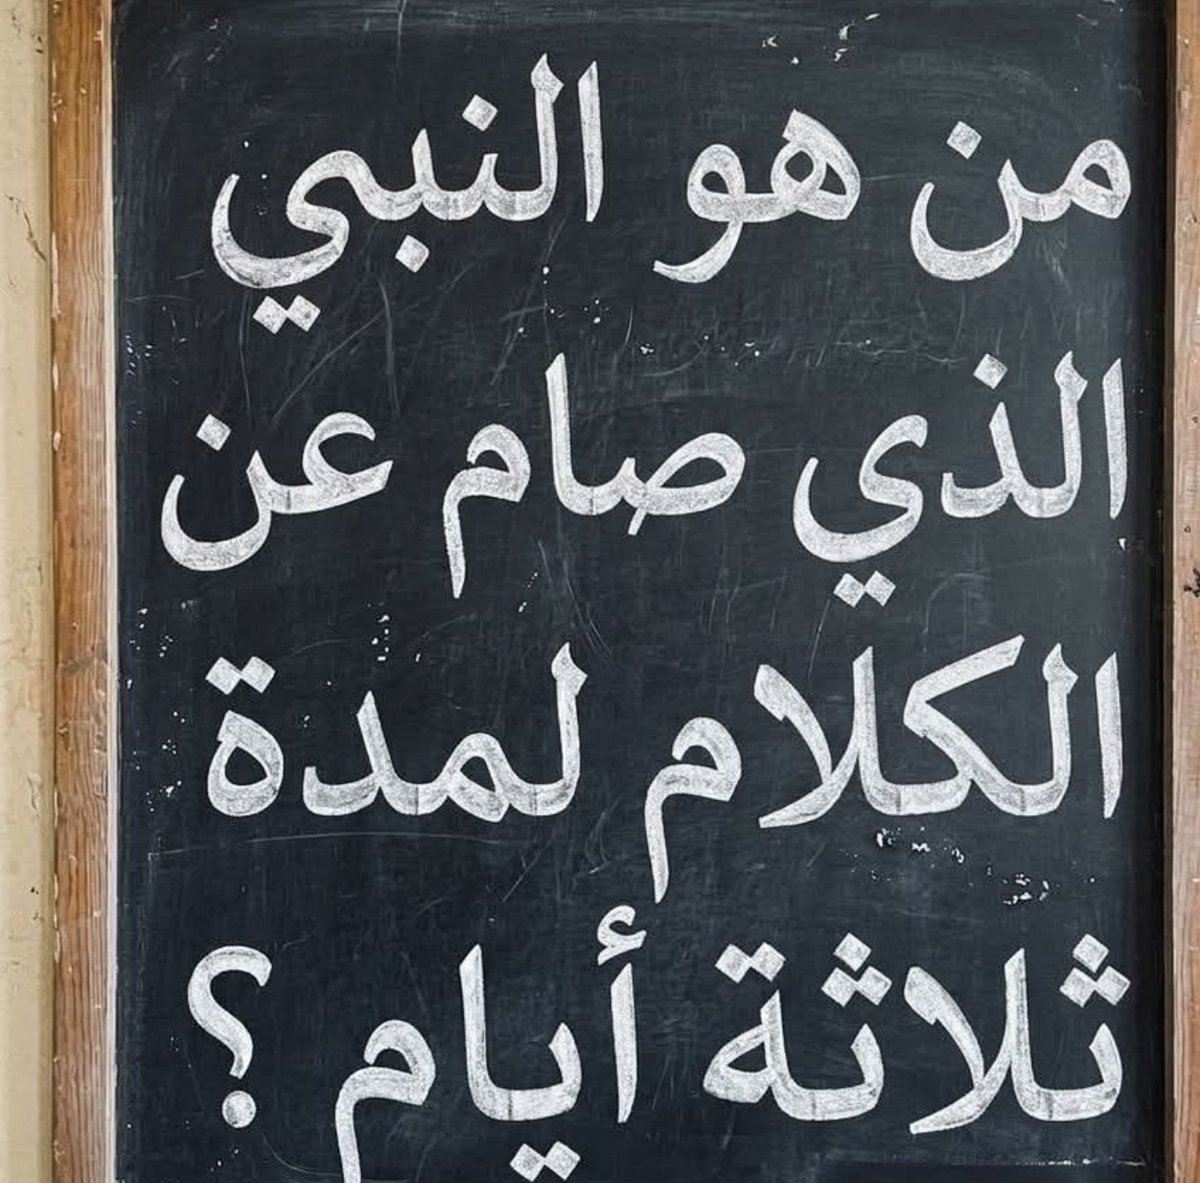 من هو النبي
الذي صام عن
الكلام لمدة
ثلاثة أيام ؟